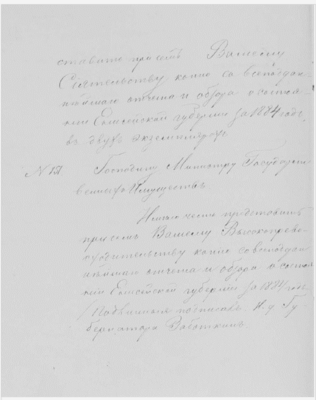 ставить при семъ Вашему
Сіятельству копію со всепод
отчета и обзора о состоя
ніи Енисейской губерніи за 1884 годъ
въ двухъ экземплярахъ.
Господину Министру Государ
ственныхъ Имуществъ
Имѣю честь представить
при семъ Вашему Высокопрево
сходительству копію со всеподдан
отчета и обзора о состоя
ніи Енисейской губерніи за 1884 годъ.
Подлинное подписалъ И. д. Гу
бернатора